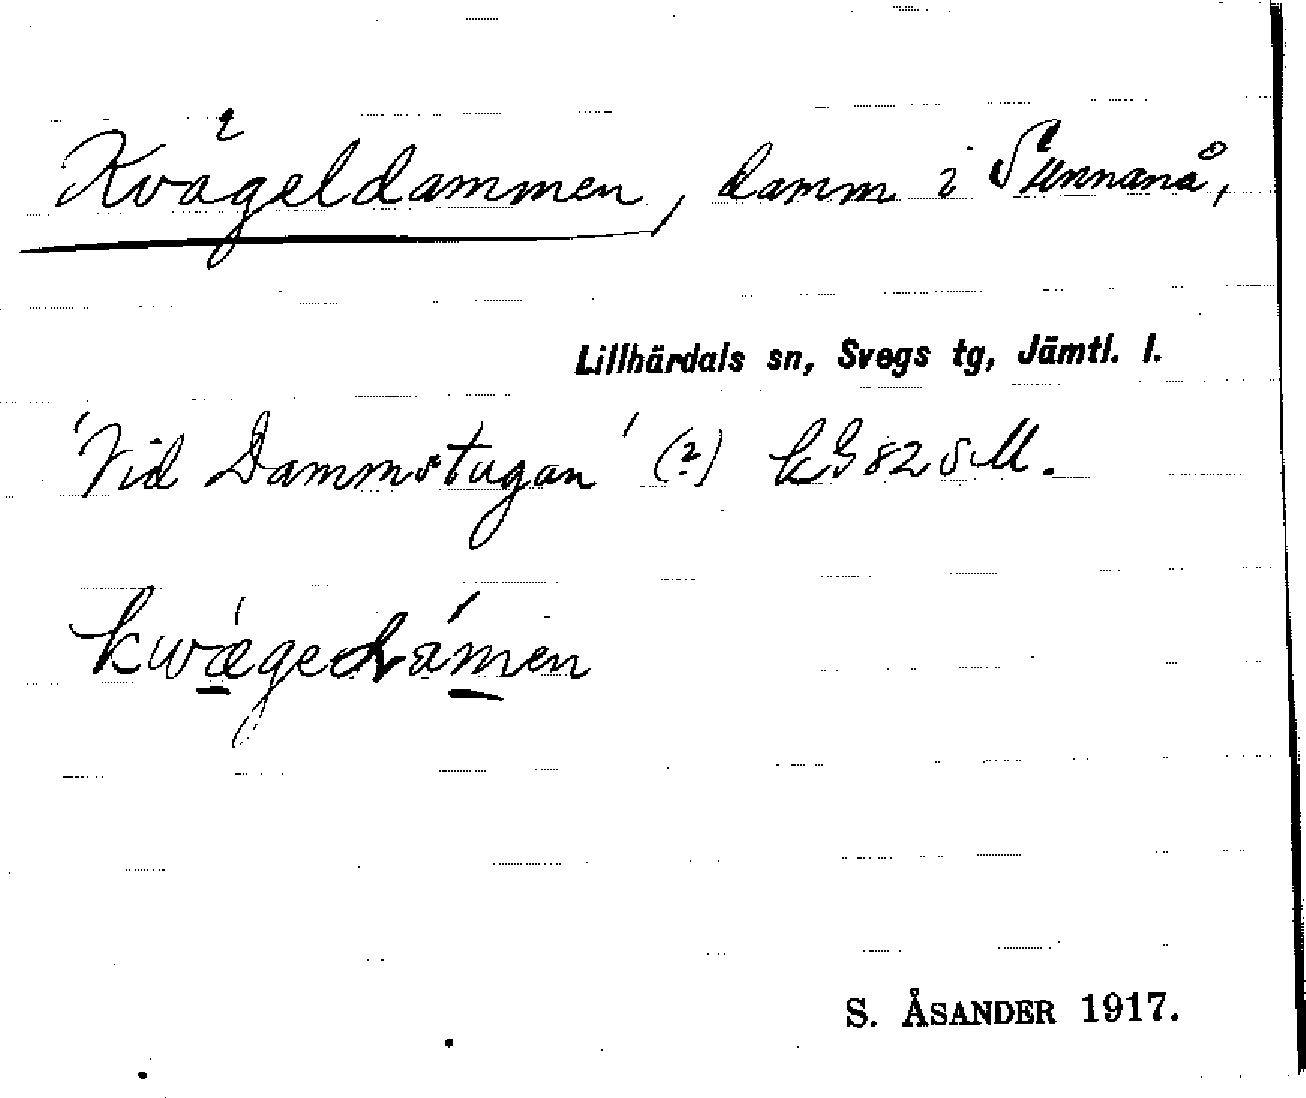 Kvägeldammen, damm i Sunnanå,
Lillhärdals sn, Svegs tg, Jämtl. l.
'Vid Dammstugan' (?)
S. ÅSANDER 1917.